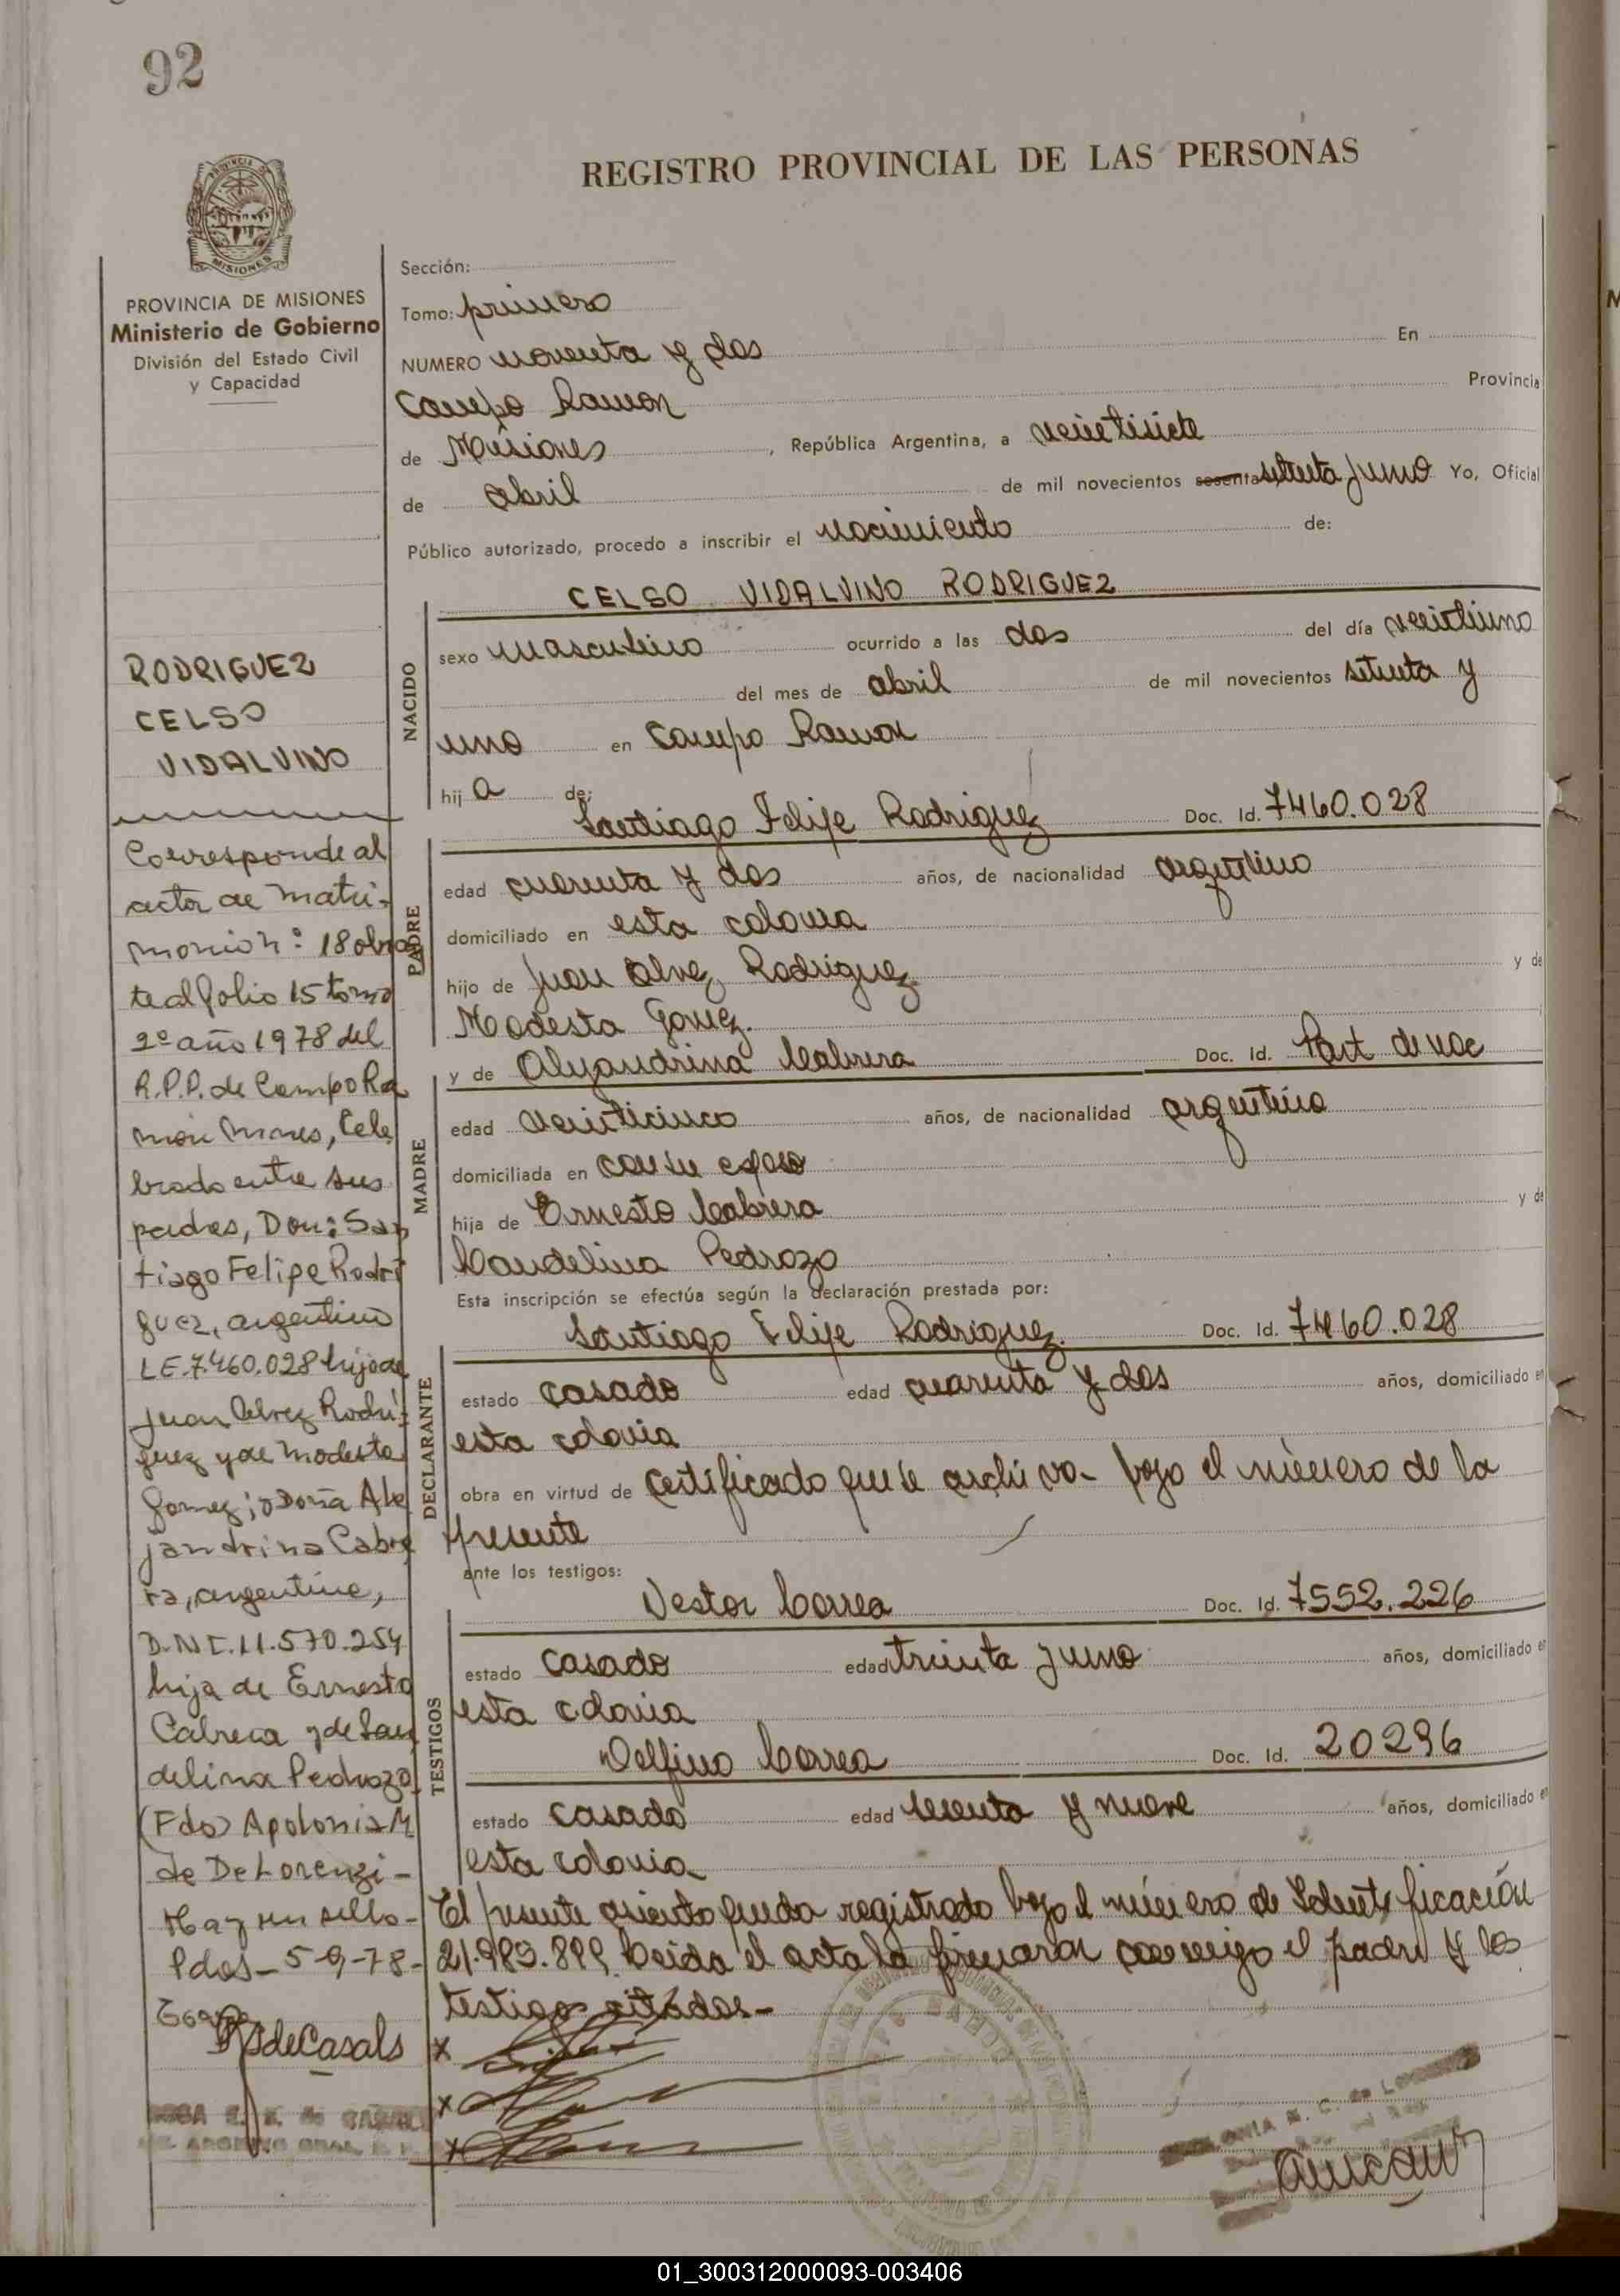 92
REGISTRO PROVINCIAL DE LAS PERSONAS
MISIONES
PROVINCIA DE MISIONES
Ministerio de Gobierno
División del Estado Civil
y Capacidad
RODRIGUEZ
CELSO
VIDALVINO
Corresponde al
acta de matri-
monio n: 18 obra
te al folio 15 tomo
2º año 1978 del
R.P.P. de Campo Ra
món Mnes, Cele
brado entre sus
padres, Don: San
tiago Felipe Rodrí
guez, argentino
L.E. 7.460.028 hijo de
Juan Alvez Rodrí-
guez y de Modesta
Gomez; y Doña Ale
jandrina Cabre
ra, argentina,
D.N.I. 11.570.254
hija de Ernesto
Cabrera y de Can
delina Pedrozo
(Fdo) Apolonia M
de De Lorenzi -
Hay un sello -
Pdas - 5-9-78 -
RSdeCasals
Sección:
Tomo: primero
NUMERO noventa y dos En
Campo Ramon Provincia
de Misiones, República Argentina, a veintisiete
de abril de mil novecientos sesenta setenta y uno Yo, Oficial
Público autorizado, procedo a inscribir el nacimiento de:
CELSO VIDALVINO RODRIGUEZ
NACIDO
sexo masculino ocurrido a las dos del día veintiuno
del mes de abril de mil novecientos setenta y
uno en Campo Ramon
hij a de:
Santiago Felipe Rodriguez Doc. Id. 7460.028
PADRE
edad cuarenta y dos años, de nacionalidad argentino
domiciliado en esta colonia
hijo de Juan Alvez Rodriguez y de
Modesta Gomez.
y de Alejandrina Cabrera Doc. Id. Part de nac
MADRE
edad veinticinco años, de nacionalidad argentina
domiciliada en con su esposo
hija de Ernesto Cabrera y de
Candelina Pedrozo
Esta inscripción se efectúa según la declaración prestada por:
Santiago Felipe Rodriguez. Doc. Id. 7460.028
DECLARANTE
estado casado edad cuarenta y dos años, domiciliado en
esta colonia
obra en virtud de certificado que se archiva- bajo el número de la
presente
ante los testigos:
Nestor Correa Doc. Id. 7552.226
TESTIGOS
estado casado edad treinta y uno años, domiciliado en
esta colonia
Delfino Correa Doc. Id. 20296
estado casado edad y nueve años, domiciliado en
esta colonia
El presente asiento queda registrado bajo el número de Identificación
21.983.899. Leida el acta la firmaron conmigo el padre y los
testigos citados-
x
x
x
01_300312000093-003406